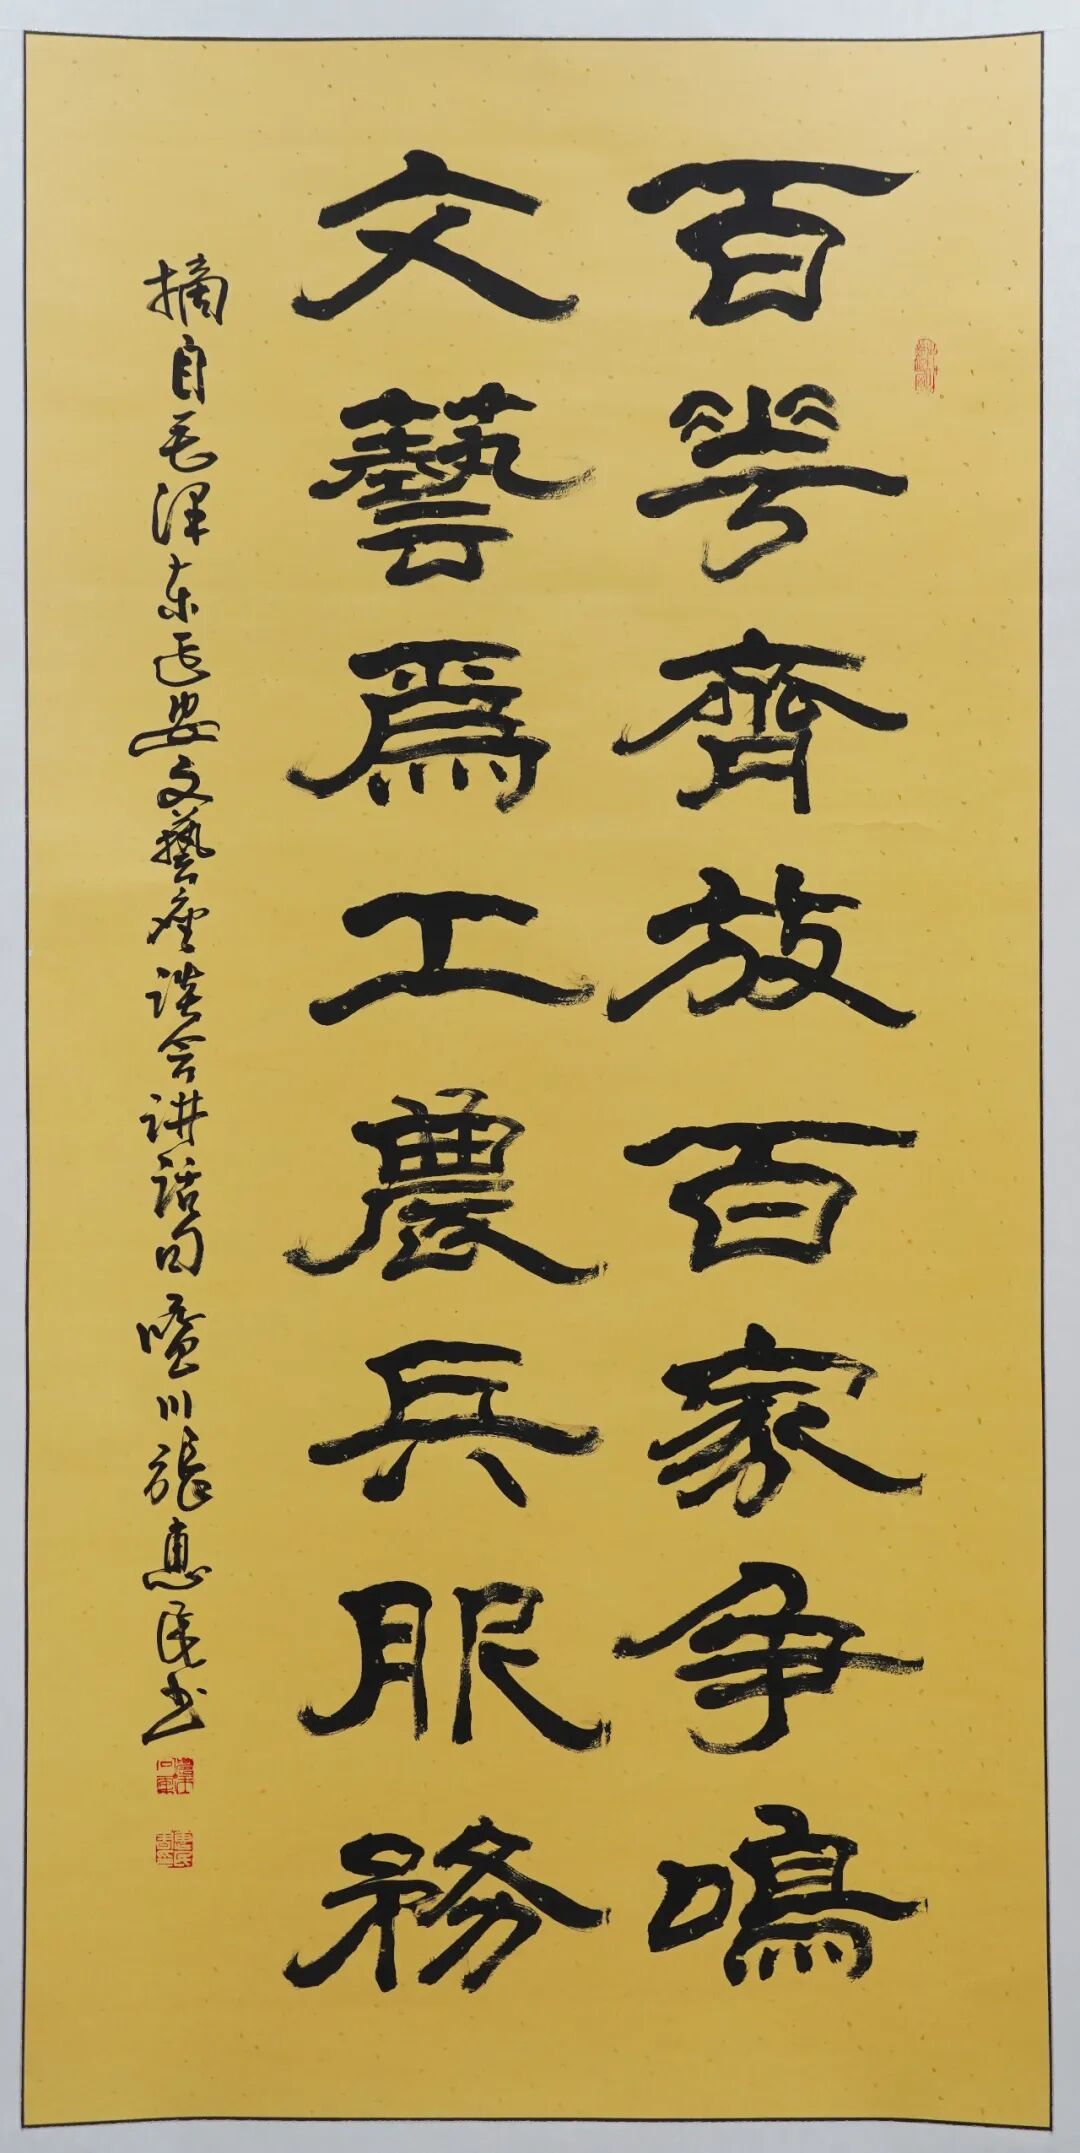 百花齊放百家争鳴
文藝爲工農兵服務
摘自毛泽东延安文藝座谈会讲话句 噎川張惠民书